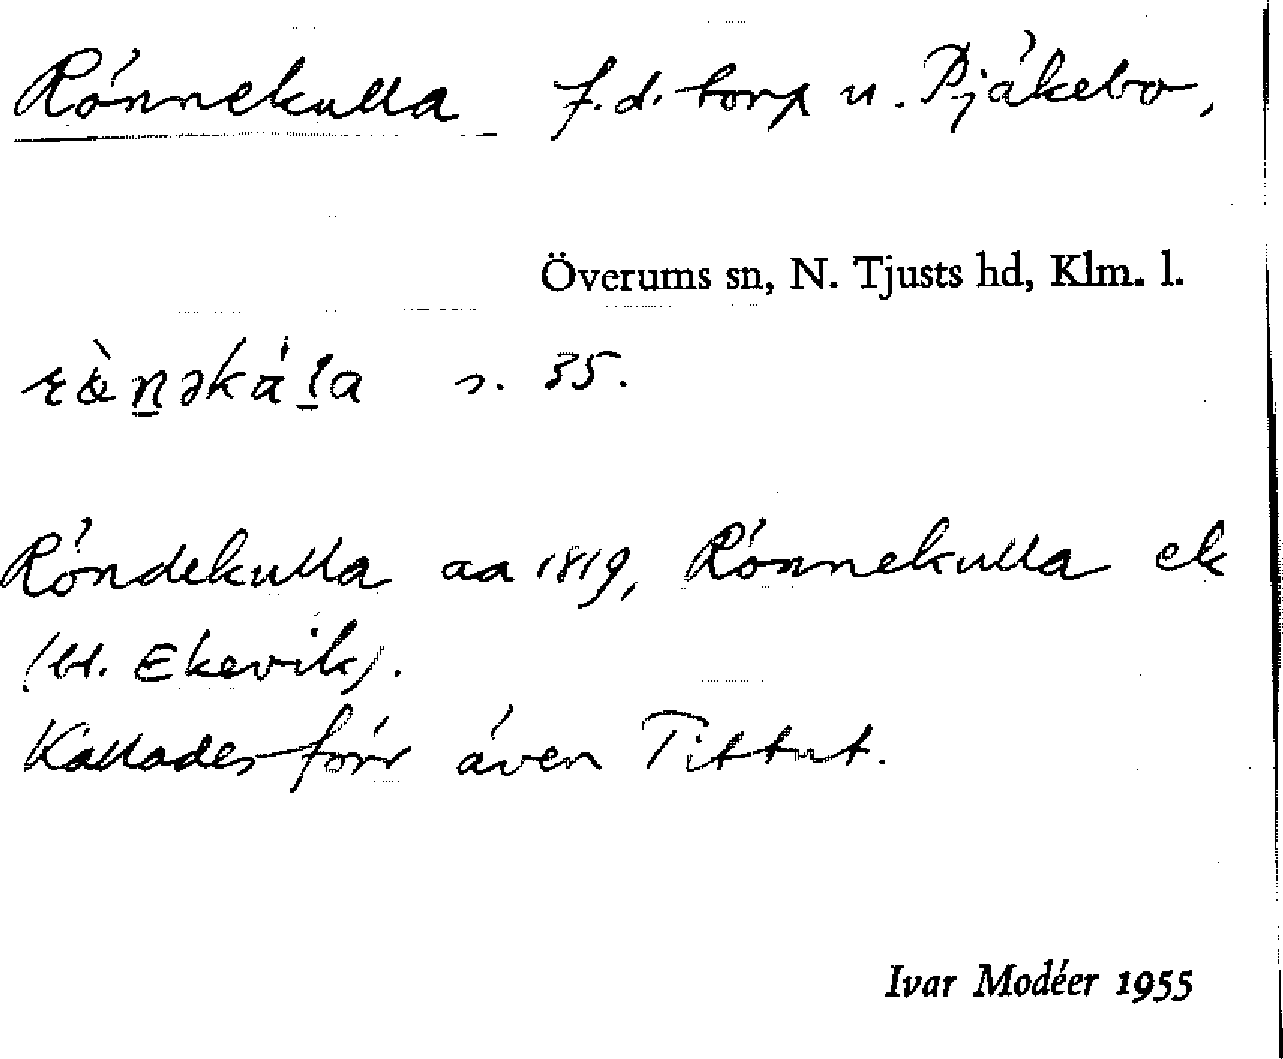 Rönnekulla f.d. torp u. Pjäkebo,
Överums sn, N. Tjusts hd, Klm. l.
s. 35.
Röndekulla aa 1819, Rönnekulla ek
(bl. Ekevik).
Kallades förr även Tittut.
Ivar Modéer 1955